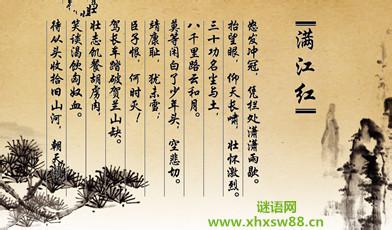 满江红
怒发冲冠，凭栏处潇潇雨歇。
抬望眼，仰天长啸，壮怀激烈。
三十功名尘与土，
八千里路云和月。
莫等闲白了少年头，空悲切。
靖康耻，犹未雪；
臣子恨，何时灭！
驾长车踏破贺兰山缺。
壮志饥餐胡虏肉，
笑谈渴饮匈奴血。
待从头收拾旧山河，朝天
谜语网
www.xhxsw88.cn